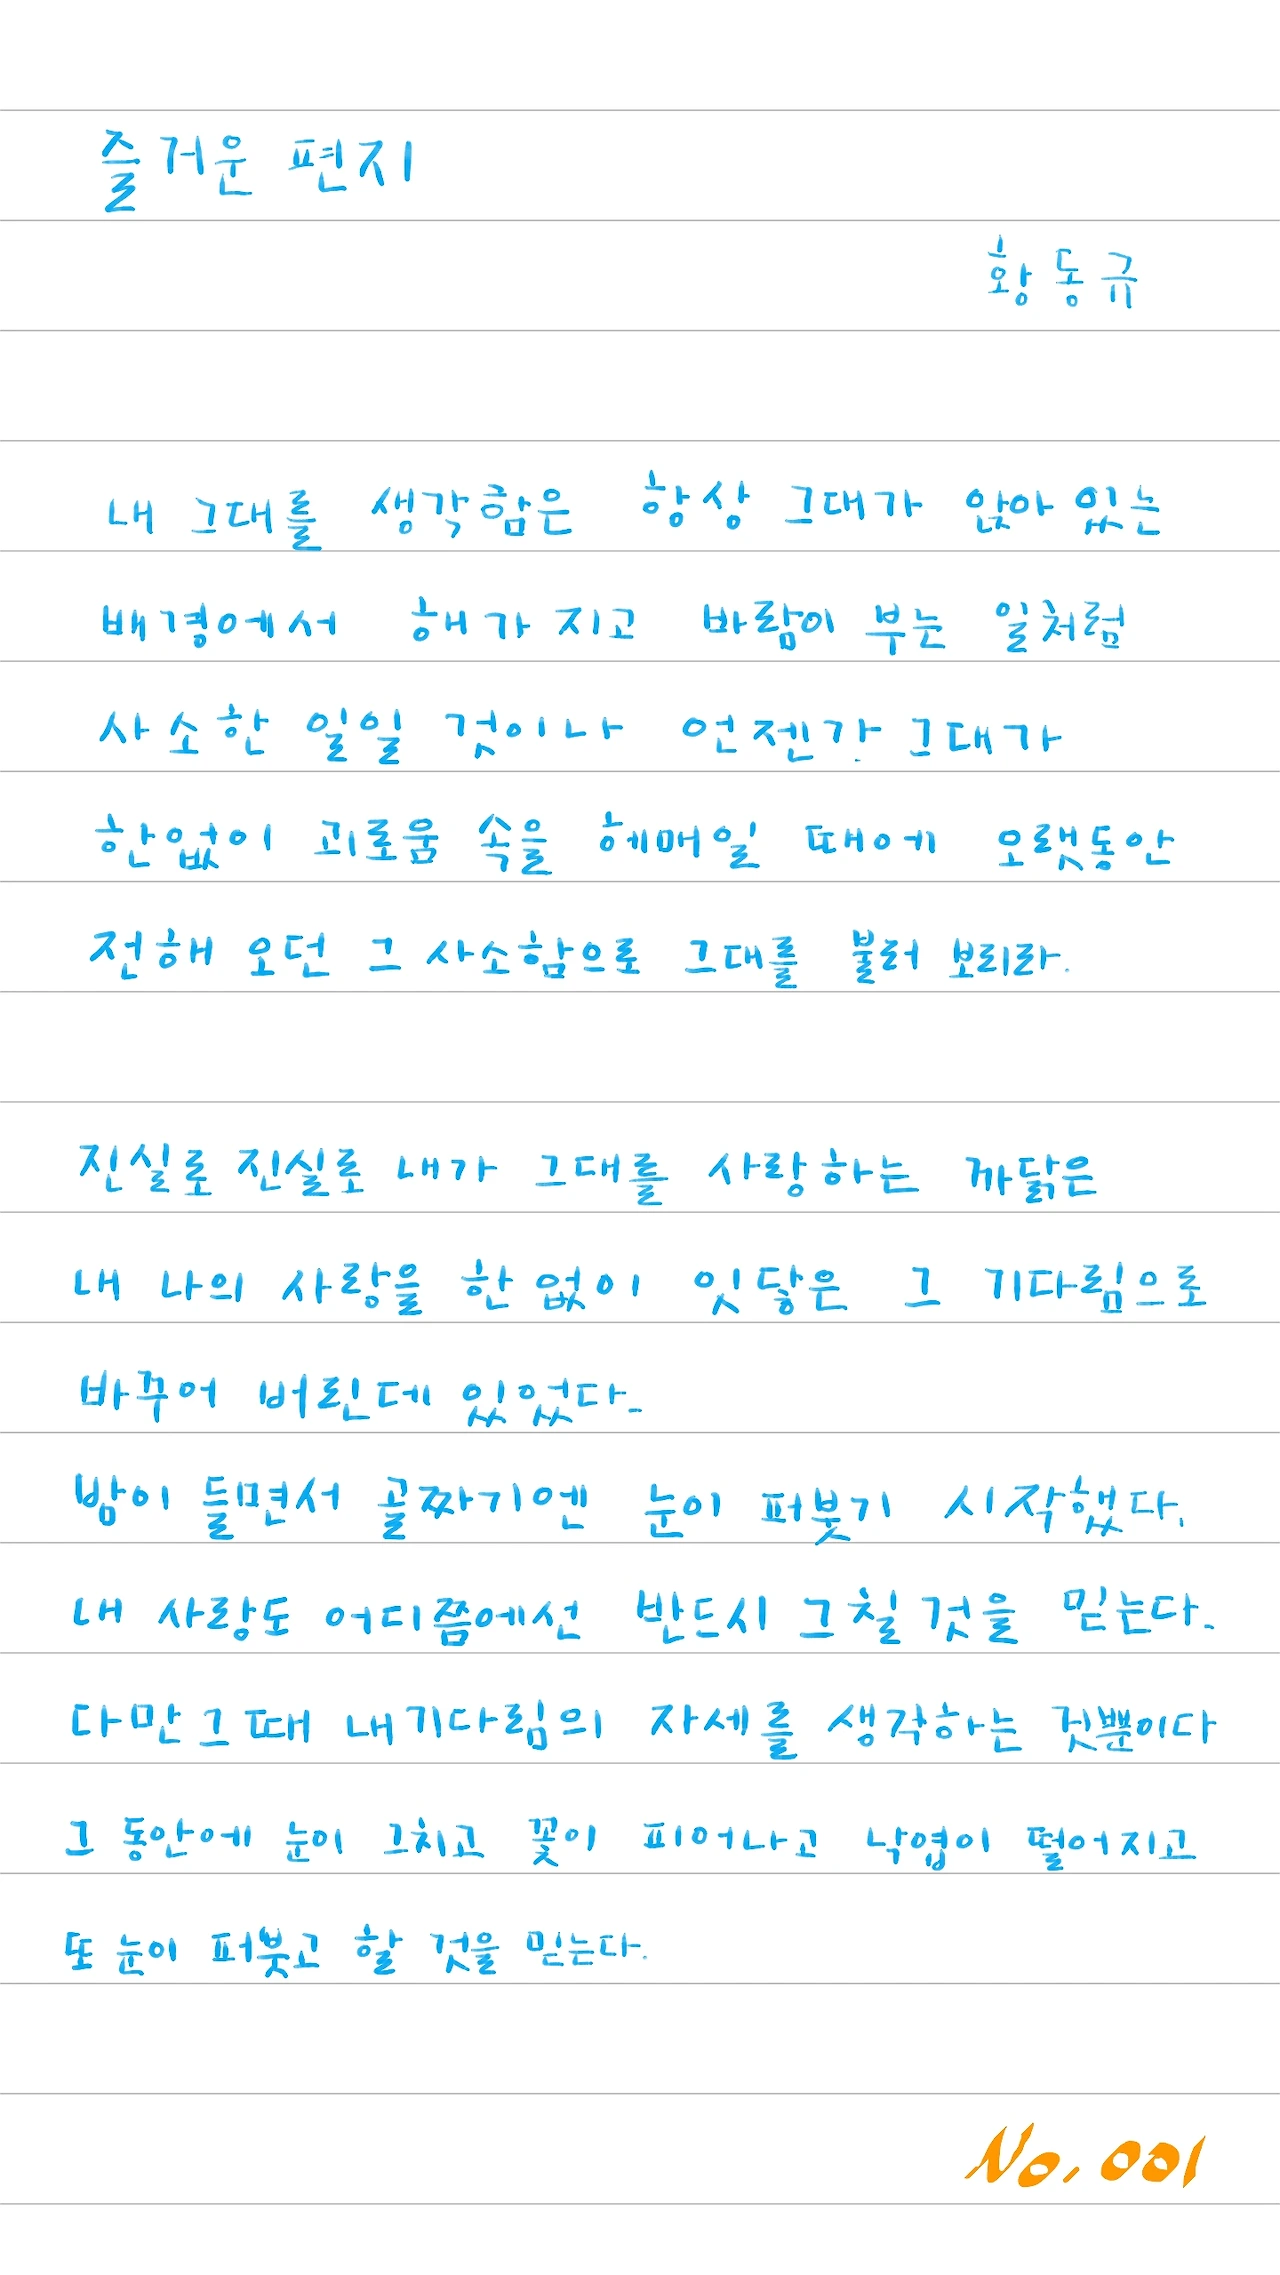 즐거운 편지
황동규
내 그대를 생각함은 항상 그대가 앉아 있는
배경에서 해가 지고 바람이 부는 일처럼
사소한 일일 것이나 언젠가 그대가
한없이 괴로움 속을 헤매일 때에 오랫동안
전해 오던 그 사소함으로 그대를 불러 보리라.
진실로 진실로 내가 그대를 사랑하는 까닭은
내 나의 사랑을 한없이 잇닿은 그 기다림으로
바꾸어 버린데 있었다.
밤이 들면서 골짜기엔 눈이 퍼붓기 시작했다.
내 사랑도 어디쯤에선 반드시 그칠 것을 믿는다.
다만 그때 내 기다림의 자세를 생각하는 것뿐이다
그 동안에 눈이 그치고 꽃이 피어나고 낙엽이 떨어지고
또 눈이 퍼붓고 할 것을 믿는다.
No. 001